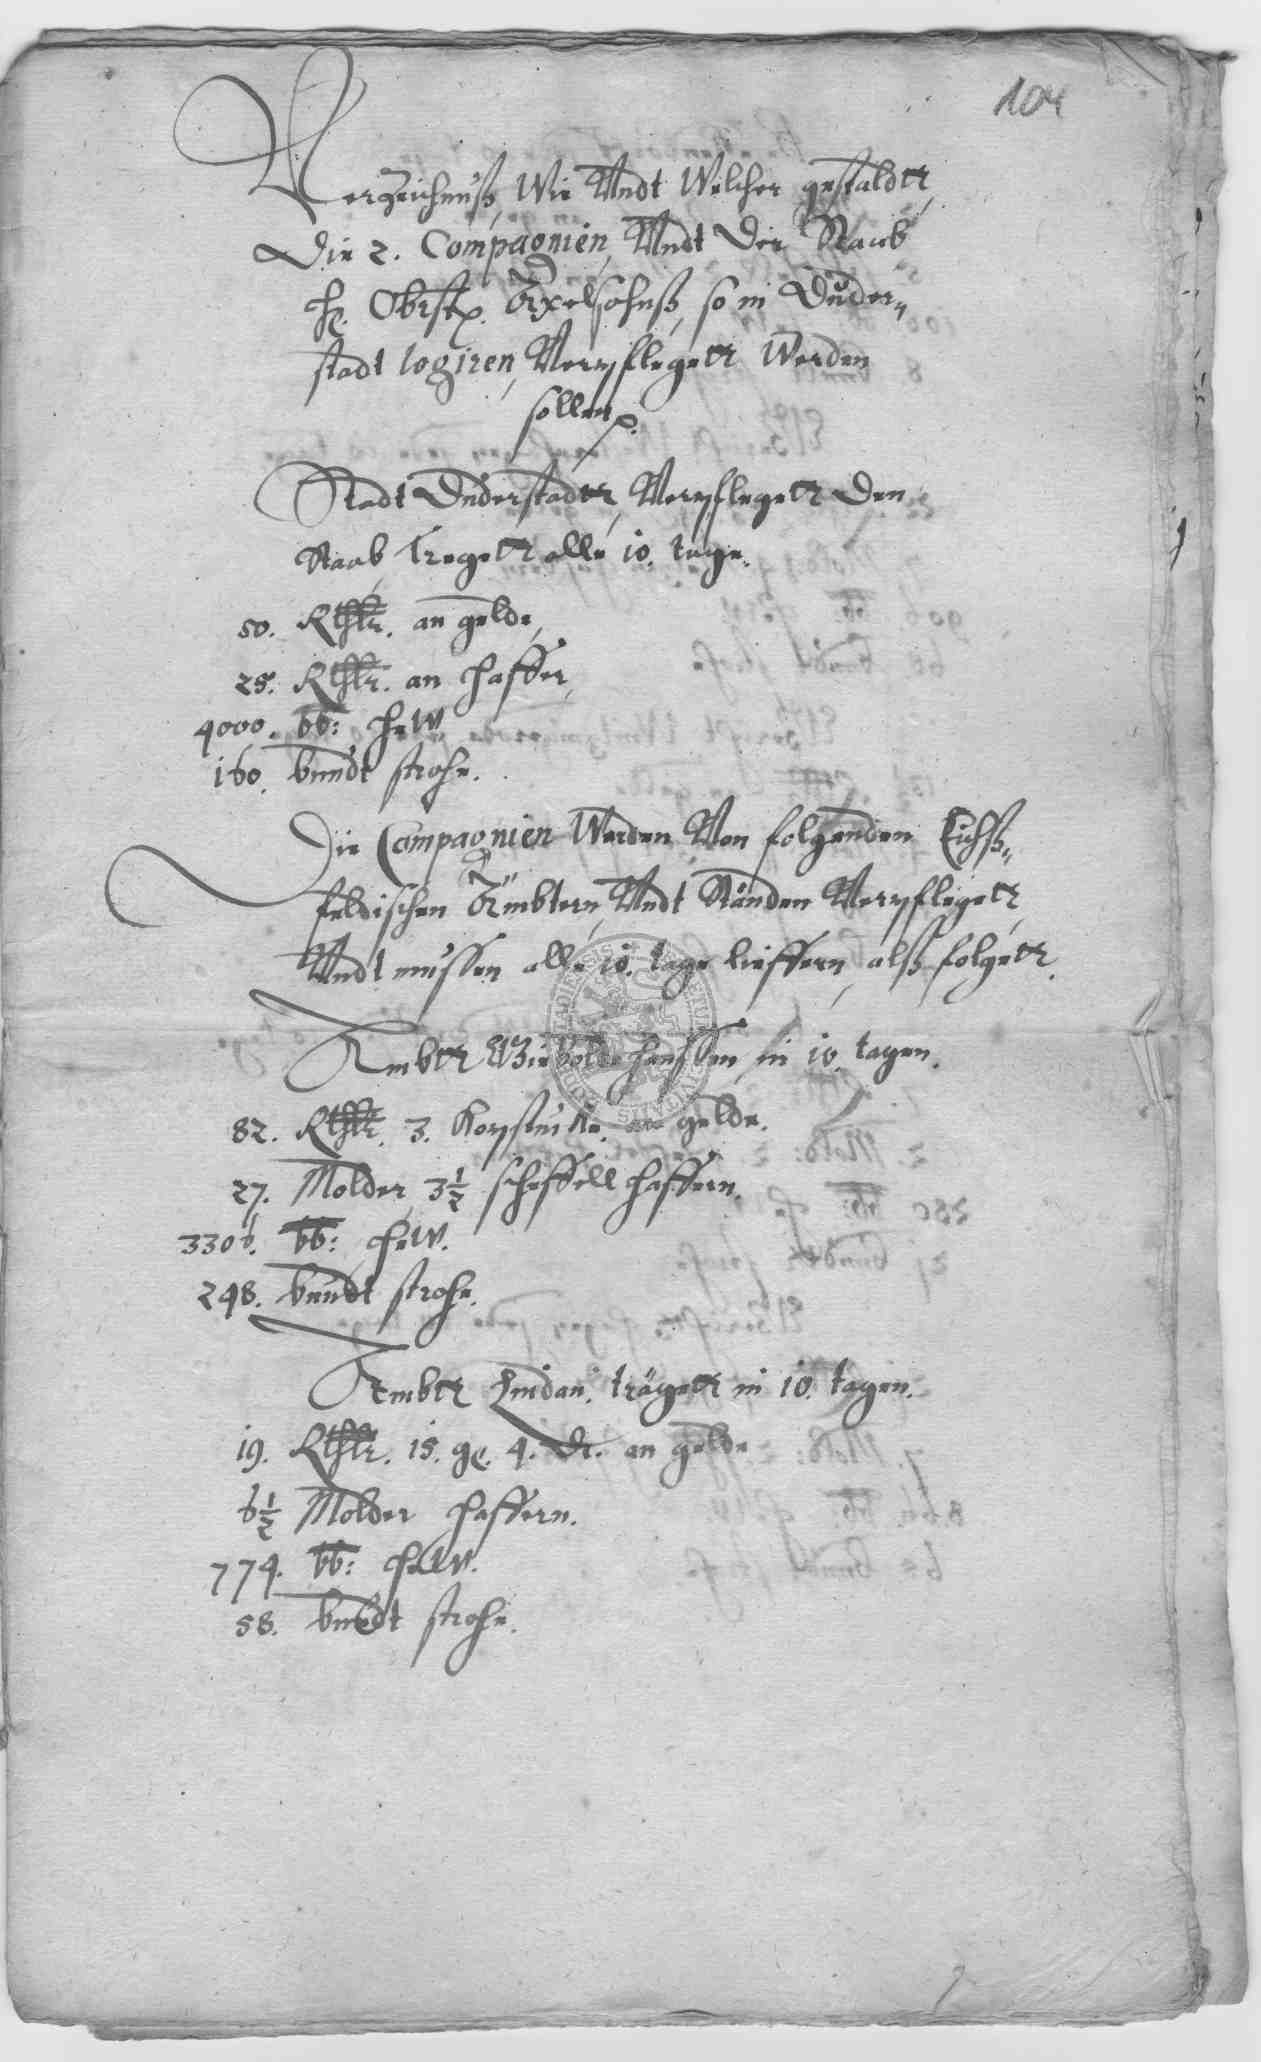 104
Verzeichnuß, Wie Undt Welcher gestaldtt,
Die 2. Compagnien, Undt Der Staab
H. Obrist. Axelsohnß, so in Duder„
stadt logiren, Verpflegett Werden
sollen.
Stadt Duderstadtt, Verpflegett Den
Staab Tregett alle 10. tage.
50. Rthlr. an gelde,
25. Rthlr. an Haffer,
4000. lb: Hew
160. bundt strohe.
Die Compagnien Werden Von folgenden Eichß„
feldischen Ämbtern, Undt Ständen Verpflegett,
Undt mussen alle 10. tage lieffern, alß folgett.
Ambtt Gieboltehaussen, in 10. tagen.
82. Rthlr. 3. Kopstucke. an gelde.
27. Molder, 3½ scheffell Haffern.
3306. lb: Hew.
248. bundt strohe.
Ambtt Lindau. trägett in 10. tagen.
19. Rthlr. 15. gr. 4. d. an gelde
6½ Molder Haffern.
774. lb: Hew.
58. bundt strohe.